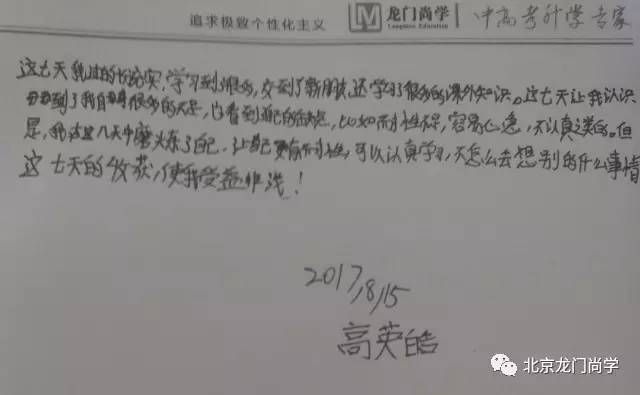 追求极致个性化主义 龙门尚学 Longmen Education 中高考升学专家
这七天我过的很充实,学习到很多,交到了新朋友,还学习了很多的课外知识。这七天让我认识
到了我自己很多的不足,也看到自己的缺点,比如耐性不足,容易心急,不认真之类的。但
是,我在这几天中磨炼了自己,让自己更有耐性,可以认真学习,不怎么去想别的什么事情
这七天的收获,使我受益非浅!
2017,8,15
高英皓
北京龙门尚学